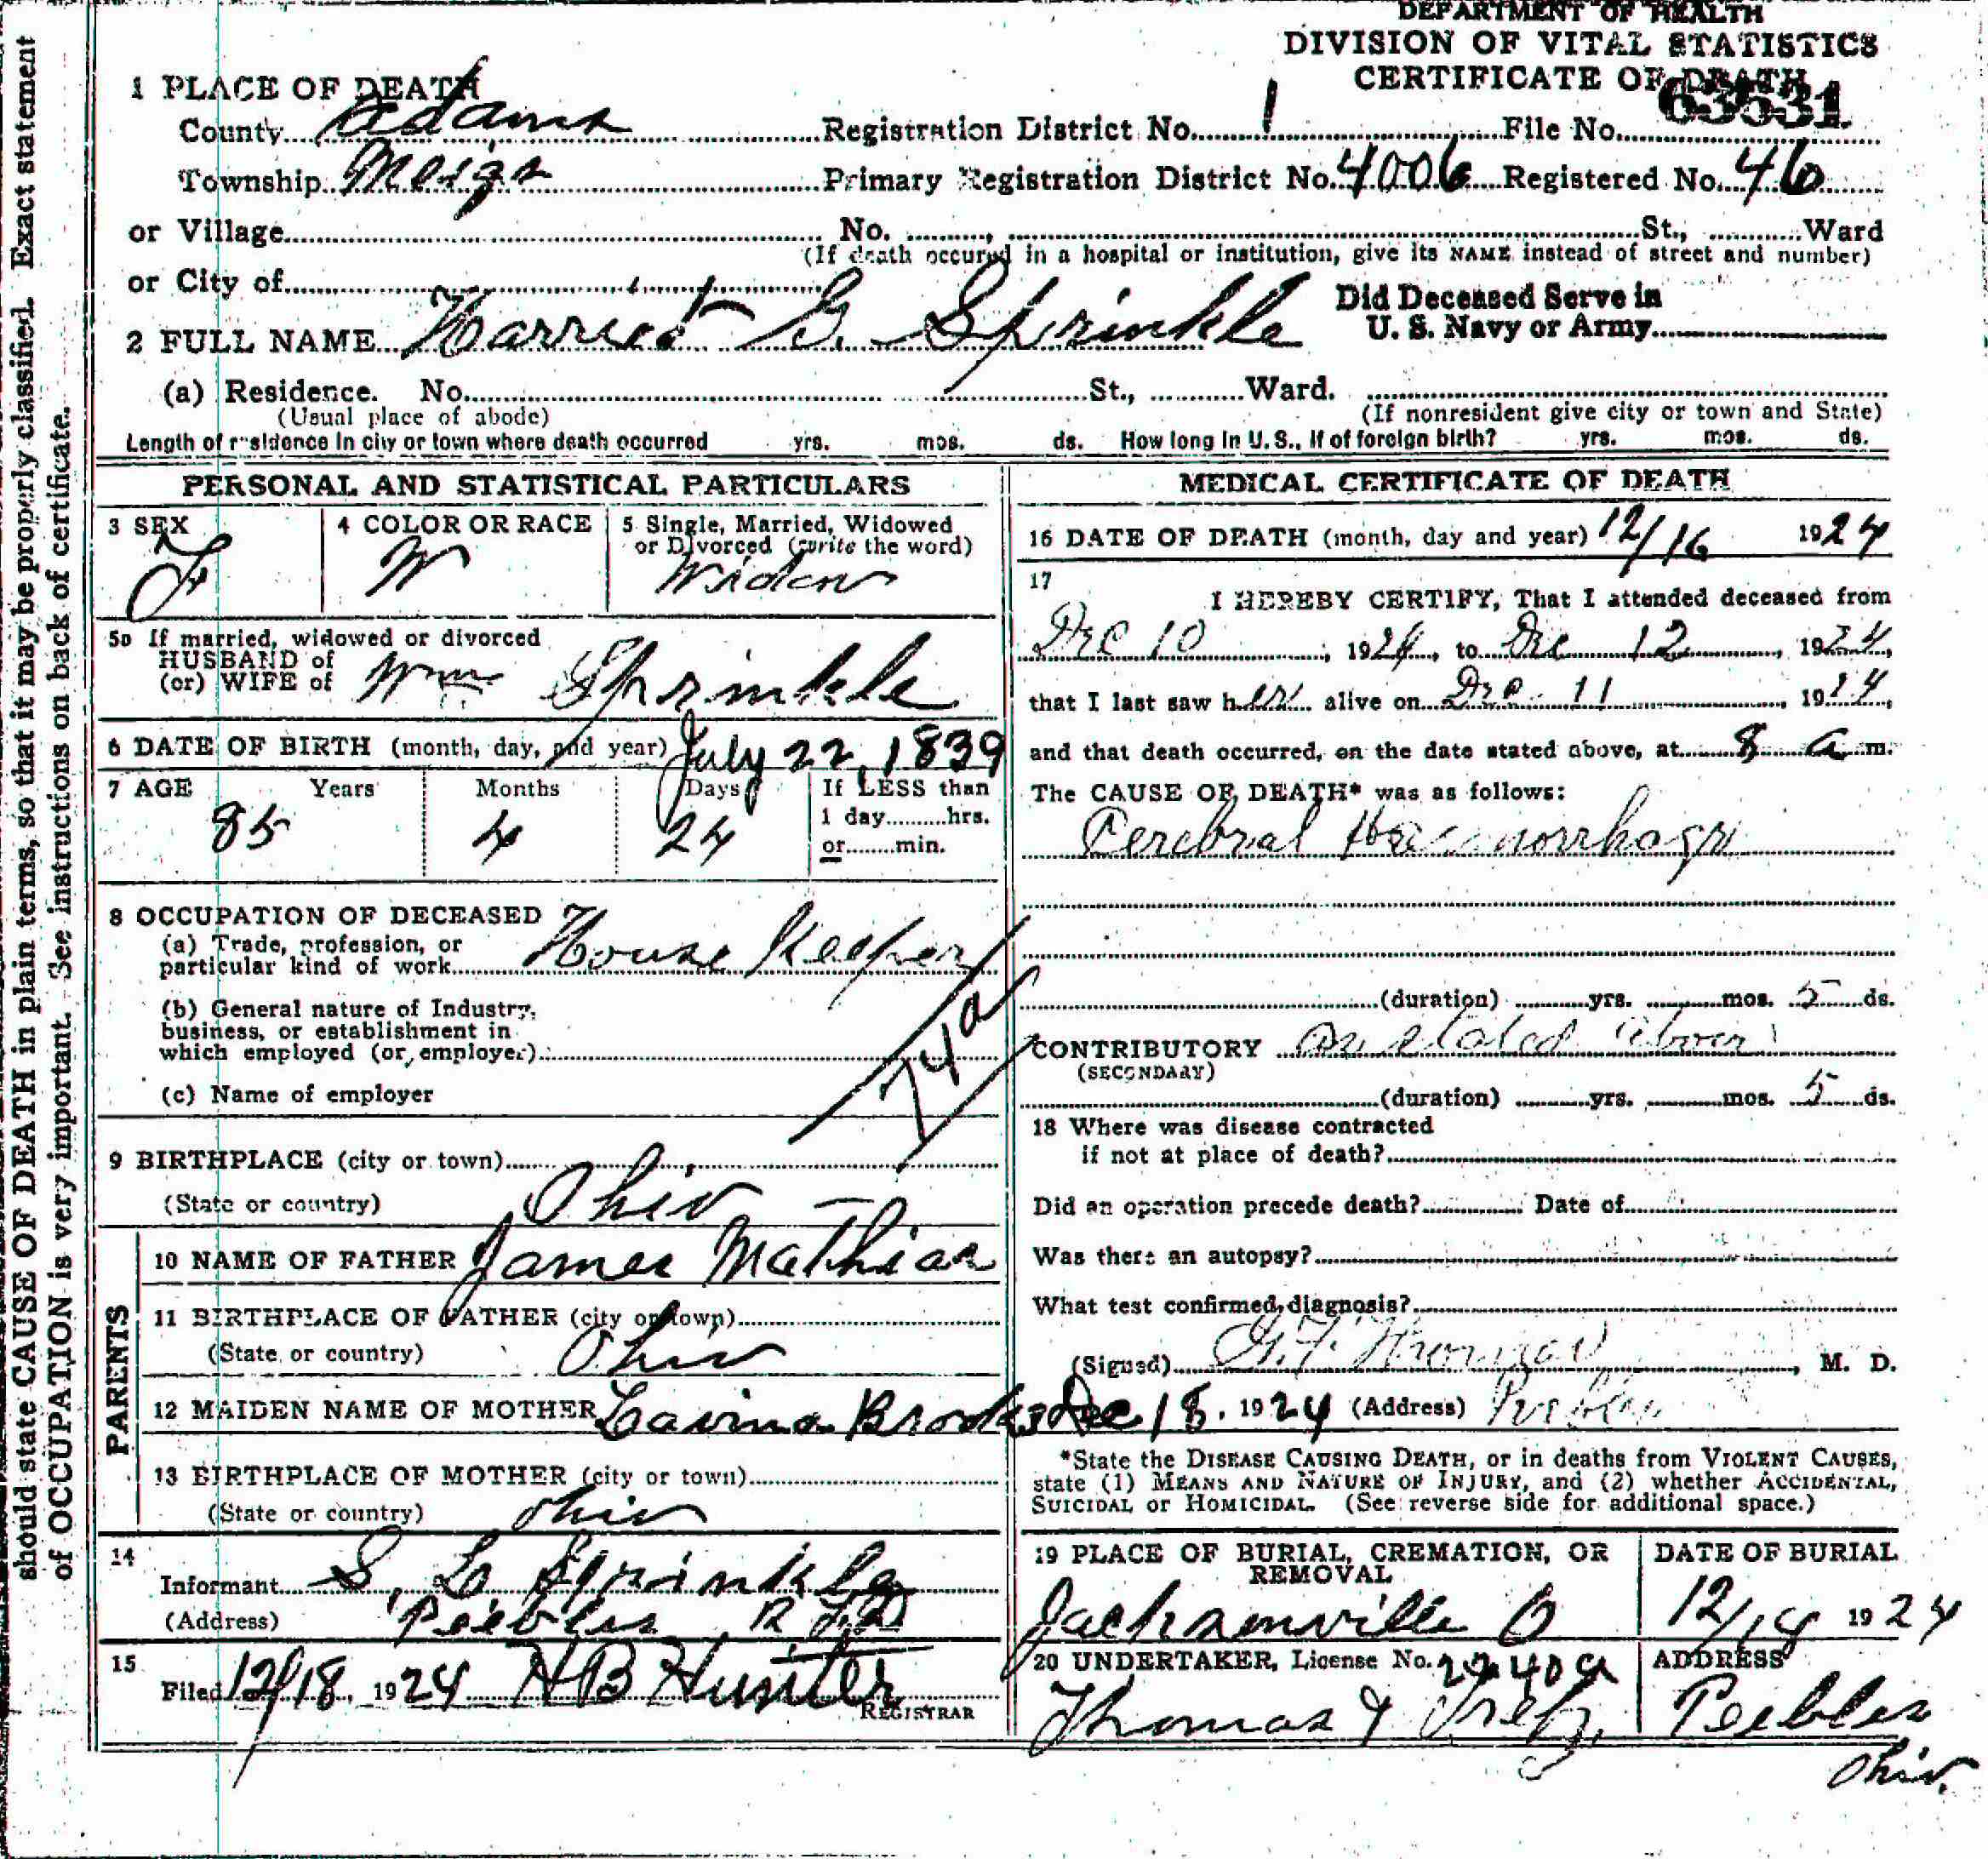 DEPARTMENT OF HEALTH
DIVISION OF VITAL STATISTICS
CERTIFICATE OF DEATH
1 PLACE OF DEATH
County Adams Registration District No. 1 File No. 63531
Township Meigs Primary Registration District No. 4006 Registered No. 46
or Village No. St., Ward
(If death occured in a hospital or institution, give its NAME instead of street and number)
or City of
Did Deceased Serve in
U. S. Navy or Army
2 FULL NAME Harriet G. Sprinkle
(a) Residence. No. St., Ward.
(Usual place of abode) (If nonresident give city or town and State)
Length of residence in city or town where death occurred yrs. mos. ds. How long in U. S., if of foreign birth? yrs. mos. ds.
should state CAUSE OF DEATH in plain terms, so that it may be properly classified. Exact statement
of OCCUPATION is very important. See instructions on back of certificate.
PERSONAL AND STATISTICAL PARTICULARS
3 SEX
F
4 COLOR OR RACE
W
5 Single, Married, Widowed
or Divorced (write the word)
Widow
5a If married, widowed or divorced
HUSBAND of
(or) WIFE of Wm Sprinkle
6 DATE OF BIRTH (month, day, and year) July 22, 1839
7 AGE Years Months Days If LESS than
1 day hrs.
or min.
85 4 24
8 OCCUPATION OF DECEASED
(a) Trade, profession, or
particular kind of work House Keeper
(b) General nature of Industry,
business, or establishment in
which employed (or employer)
(c) Name of employer
74a
9 BIRTHPLACE (city or town)
(State or country) Ohio
PARENTS
10 NAME OF FATHER James Mathias
11 BIRTHPLACE OF FATHER (city or town)
(State or country) Ohio
12 MAIDEN NAME OF MOTHER Lavina Brooks
13 BIRTHPLACE OF MOTHER (city or town)
(State or country) Ohio
14
Informant S. L. Sprinkle
(Address) Peebles R F D
15
Filed 12/18, 1924 H B Hunter
REGISTRAR
MEDICAL CERTIFICATE OF DEATH
16 DATE OF DEATH (month, day and year) 12/16 1924
17
I HEREBY CERTIFY, That I attended deceased from
Dec 10, 1924, to Dec 12, 1924,
that I last saw her alive on Dec 11, 1924,
and that death occurred, on the date stated above, at 8 a m.
The CAUSE OF DEATH* was as follows:
Cerebral Haemorrhage
(duration) yrs. mos. 5 ds.
CONTRIBUTORY as stated above
(SECONDARY)
(duration) yrs. mos. 5 ds.
18 Where was disease contracted
if not at place of death?
Did an operation precede death? Date of
Was there an autopsy?
What test confirmed diagnosis?
(Signed) , M. D.
Dec 18, 1924 (Address) Peebles
*State the DISEASE CAUSING DEATH, or in deaths from VIOLENT CAUSES,
state (1) MEANS AND NATURE OF INJURY, and (2) whether ACCIDENTAL,
SUICIDAL or HOMICIDAL. (See reverse side for additional space.)
19 PLACE OF BURIAL, CREMATION, OR
REMOVAL
Jacksonville O
DATE OF BURIAL
12/18 1924
20 UNDERTAKER, License No.
Thomas &
ADDRESS
Peebles
Ohio.